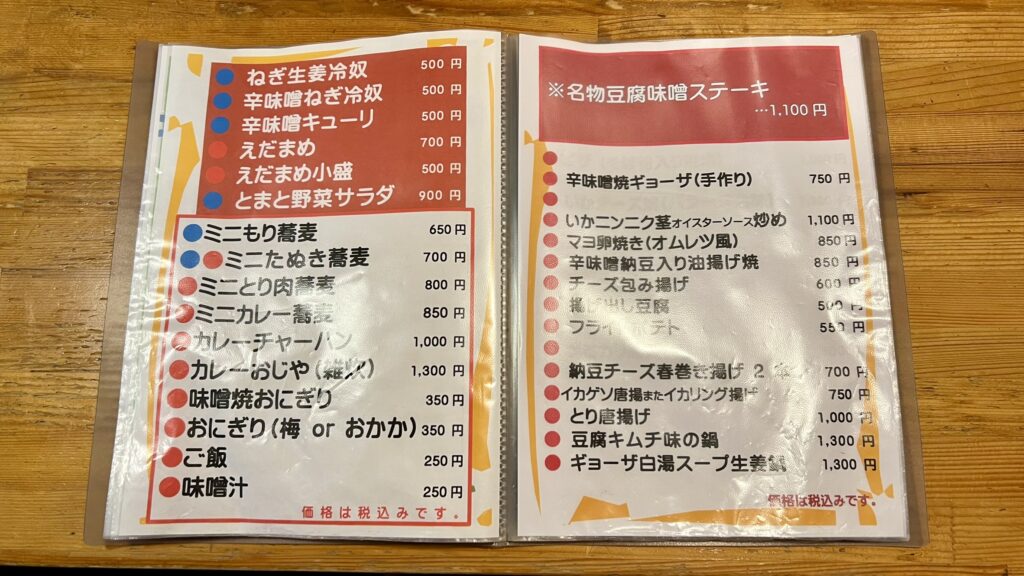 ねぎ生姜冷奴 500 円
辛味噌ねぎ冷奴 500 円
辛味噌キューリ 500 円
えだまめ 700 円
えだまめ小盛 500 円
とまと野菜サラダ 900 円
ミニもり蕎麦 650 円
ミニたぬき蕎麦 700 円
ミニとり肉蕎麦 800 円
ミニカレー蕎麦 850 円
カレーチャーハン 1,000 円
カレーおじや(雑炊) 1,300 円
味噌焼おにぎり 350 円
おにぎり(梅 or おかか) 350 円
ご飯 250 円
味噌汁 250 円
価格は税込みです。
※名物豆腐味噌ステーキ
…1,100 円
辛味噌焼ギョーザ(手作り) 750 円
いかニンニク茎オイスターソース炒め 1,100 円
マヨ卵焼き(オムレツ風) 850 円
辛味噌納豆入り油揚げ焼 850 円
チーズ包み揚げ 600 円
揚げ出し豆腐 500 円
フライ ポテト 550 円
納豆チーズ春巻き揚げ 2 700 円
イカゲソ唐揚またイカリング揚げ 750 円
とり唐揚げ 1,000 円
豆腐キムチ味の鍋 1,300 円
ギョーザ白湯スープ生姜鍋 1,300 円
価格は税込みです。